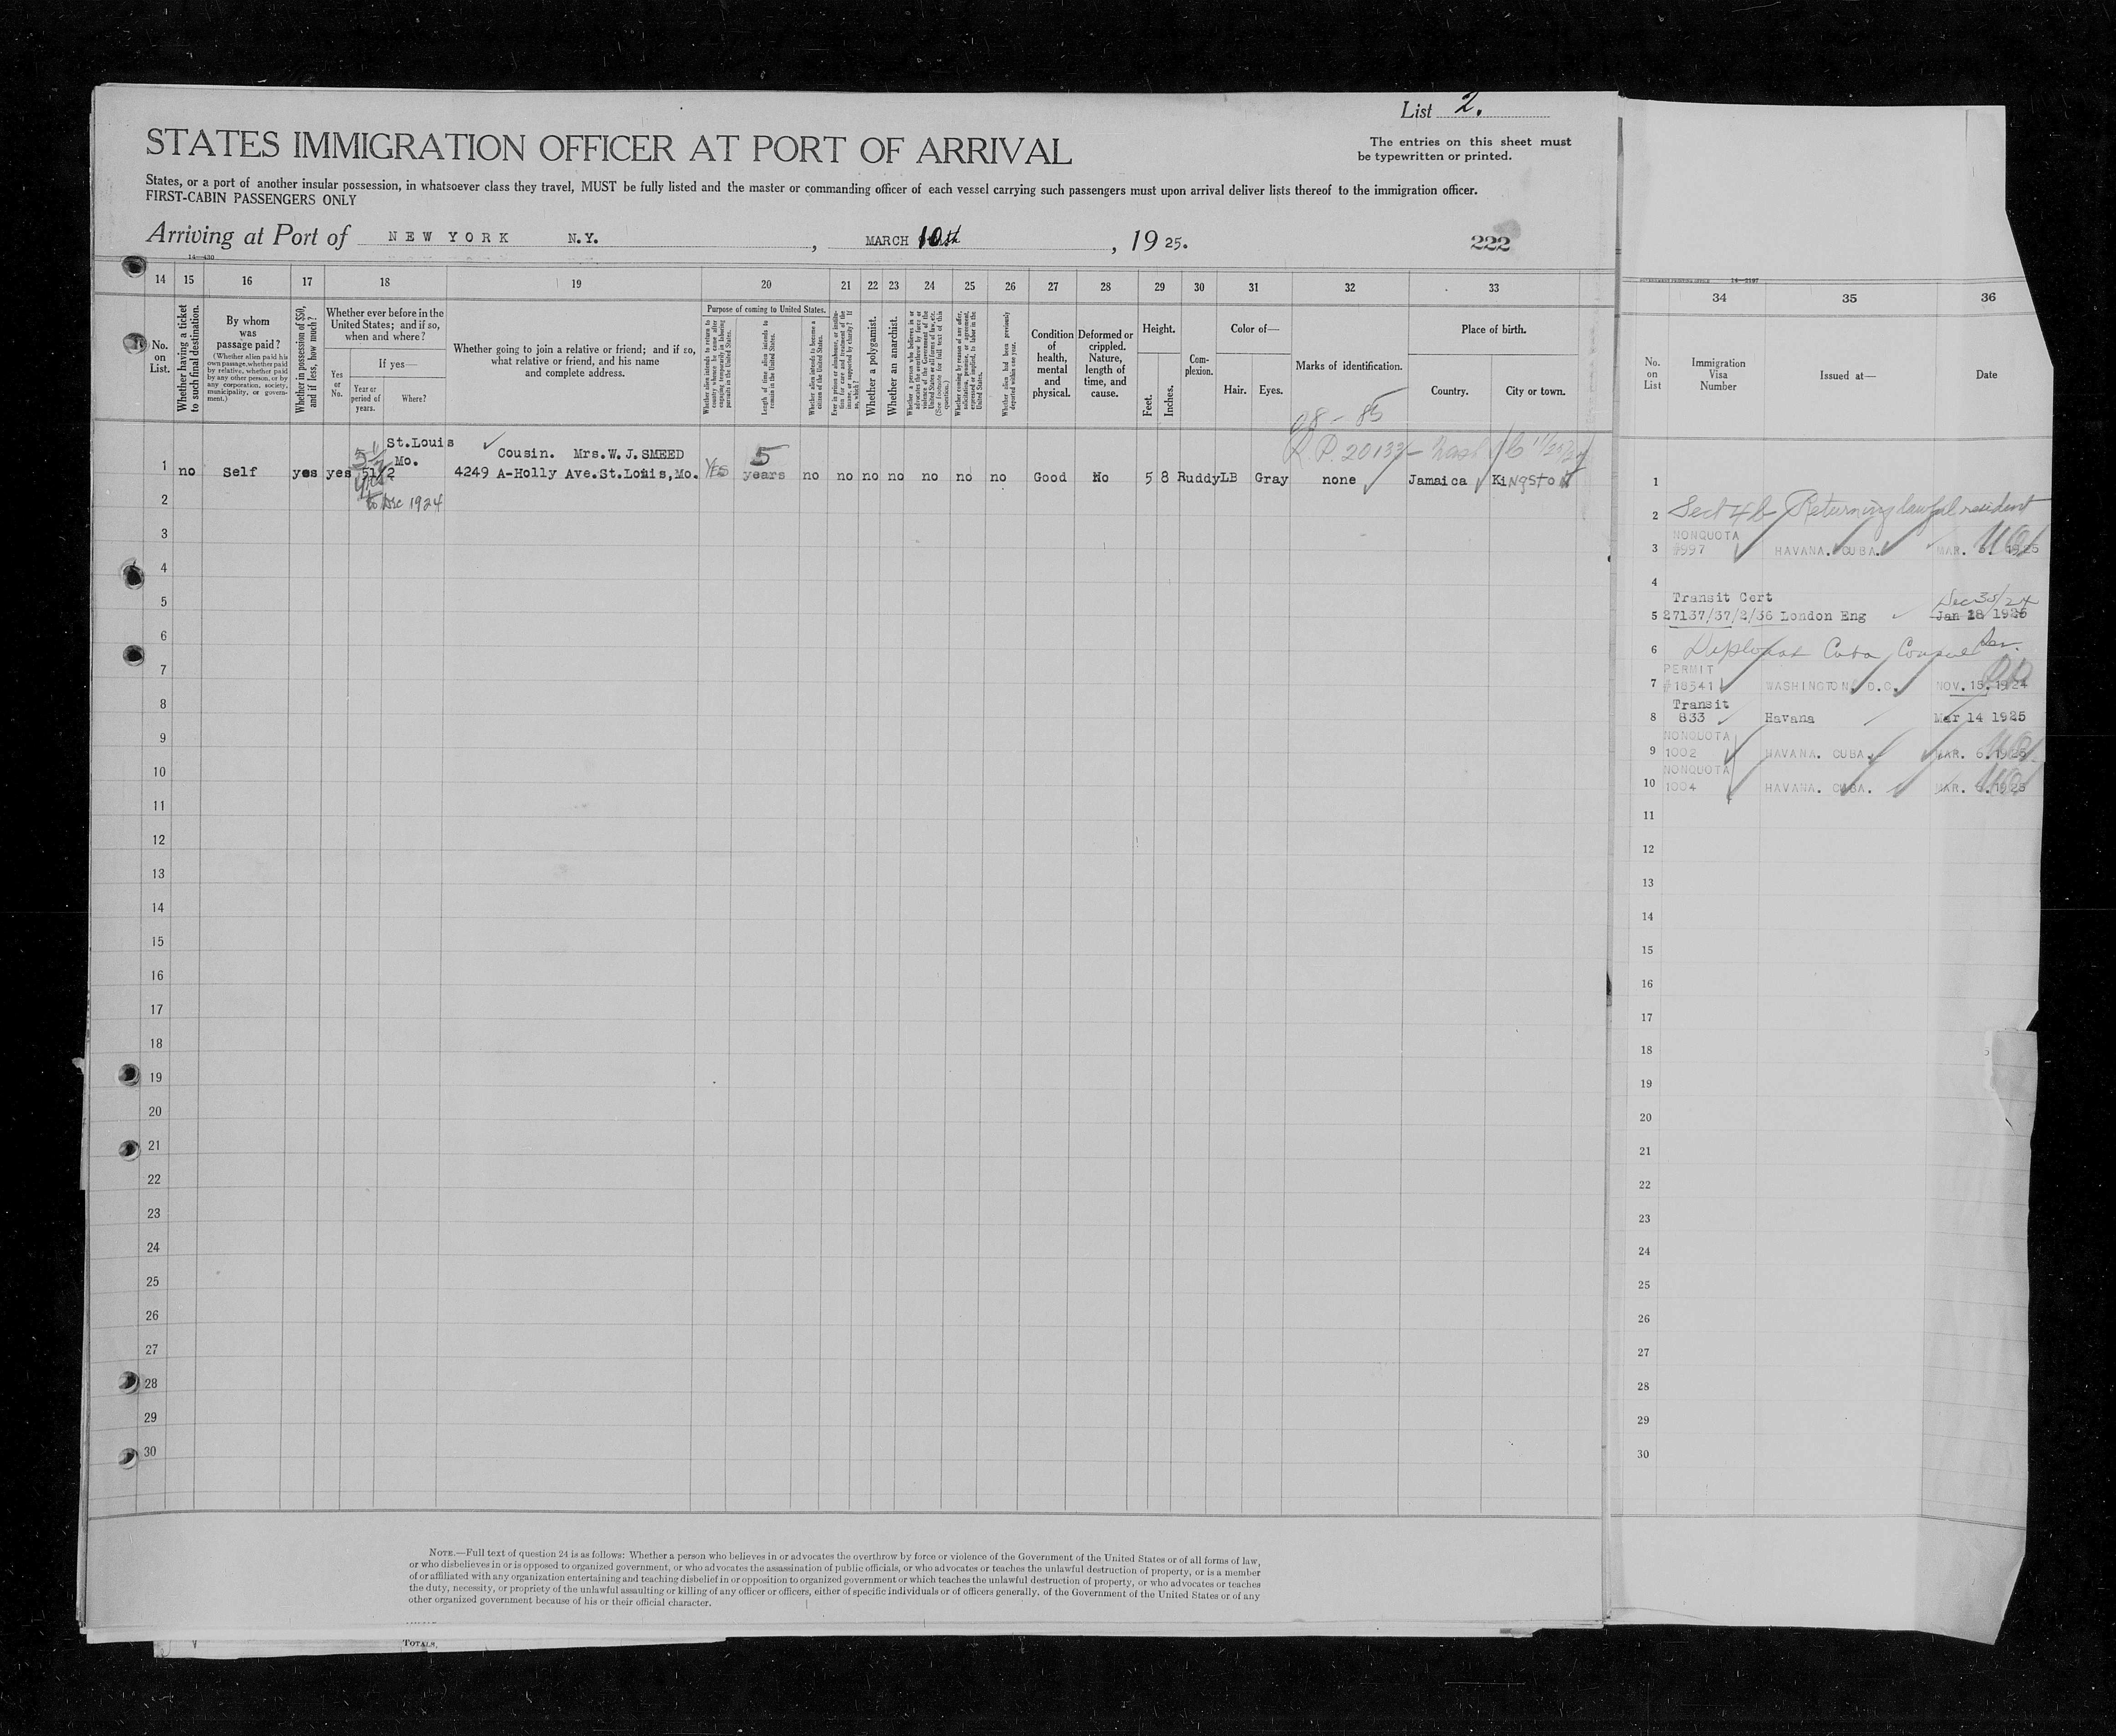 List 2.
STATES IMMIGRATION OFFICER AT PORT OF ARRIVAL
The entries on this sheet must
be typewritten or printed.
States, or a port of another insular possession, in whatsoever class they travel, MUST be fully listed and the master or commanding officer of each vessel carrying such passengers must upon arrival deliver lists thereof to the immigration officer.
FIRST-CABIN PASSENGERS ONLY
Arriving at Port of NEW YORK N.Y. , MARCH 10th , 19 25.
222
14—430
14 15 16 17 18 19 20 21 22 23 24 25 26 27 28 29 30 31 32 33
No.
on
List.
Whether having a ticket
to such final destination.
By whom
was
passage paid?
(Whether alien paid his
own passage, whether paid
by relative, whether paid
by any other person, or by
any corporation, society,
municipality, or govern-
ment.)
Whether in possession of $50,
and if less, how much?
Whether ever before in the
United States; and if so,
when and where?
Yes
or
No.
If yes—
Year or
period of
years.
Where?
Whether going to join a relative or friend; and if so,
what relative or friend, and his name
and complete address.
Purpose of coming to United States.
Whether alien intends to return to
country whence he came after
engaging temporarily in laboring
pursuits in the United States.
Length of time alien intends to
remain in the United States.
Whether alien intends to become a
citizen of the United States.
Ever in prison or almshouse, or institu-
tion for care and treatment of the
insane, or supported by charity? If
so, which?
Whether a polygamist.
Whether an anarchist.
Whether a person who believes in or
advocates the overthrow by force or
violence of the Government of the
United States or all forms of law, etc.
(See footnote for full text of this
question.)
Whether coming by reason of any offer,
solicitation, promise, or agreement,
expressed or implied, to labor in the
United States.
Whether alien had been previously
deported within one year.
Condition
of
health,
mental
and
physical.
Deformed or
crippled.
Nature,
length of
time, and
cause.
Height.
Feet.
Inches.
Com-
plexion.
Color of—
Hair.
Eyes.
Marks of identification.
Place of birth.
Country.
City or town.
98 - 85
R.P. 20133 -
5 1/2
St.Louis
Mo.
Cousin. Mrs.W.J.SMEED
5
1 no Self yes yes 51/2 4249 A-Holly Ave.St.Louis,Mo. YES years no no no no no no no Good No 5 8 Ruddy LB Gray none Jamaica Kingston
to Dec 1924
2
3
4
5
6
7
8
9
10
11
12
13
14
15
16
17
18
19
20
21
22
23
24
25
26
27
28
29
30
NOTE.—Full text of question 24 is as follows: Whether a person who believes in or advocates the overthrow by force or violence of the Government of the United States or of all forms of law,
or who disbelieves in or is opposed to organized government, or who advocates the assassination of public officials, or who advocates or teaches the unlawful destruction of property, or is a member
of or affiliated with any organization entertaining and teaching disbelief in or opposition to organized government or which teaches the unlawful destruction of property, or who advocates or teaches
the duty, necessity, or propriety of the unlawful assaulting or killing of any officer or officers, either of specific individuals or of officers generally, of the Government of the United States or of any
other organized government because of his or their official character.
TOTALS.
GOVERNMENT PRINTING OFFICE 14—2197
34 35 36
No.
on
List
Immigration
Visa
Number
Issued at—
Date
1
2 Sect 4b Returning lawful resident
NONQUOTA
3 #997 HAVANA. CUBA. MAR. 6. 1925
4
Transit Cert Dec 30/24
5 27137/37/2/36 London Eng Jan 28 1925
6 Diplomat Cuba Consul
PERMIT
7 #18341 WASHINGTON, D.C. NOV. 15. 1924
Transit
8 833 Havana Mar 14 1925
NONQUOTA
9 1002 HAVANA. CUBA. MAR. 6. 1925
NONQUOTA
10 1004 HAVANA. CUBA. MAR. 6. 1925
11
12
13
14
15
16
17
18
19
20
21
22
23
24
25
26
27
28
29
30